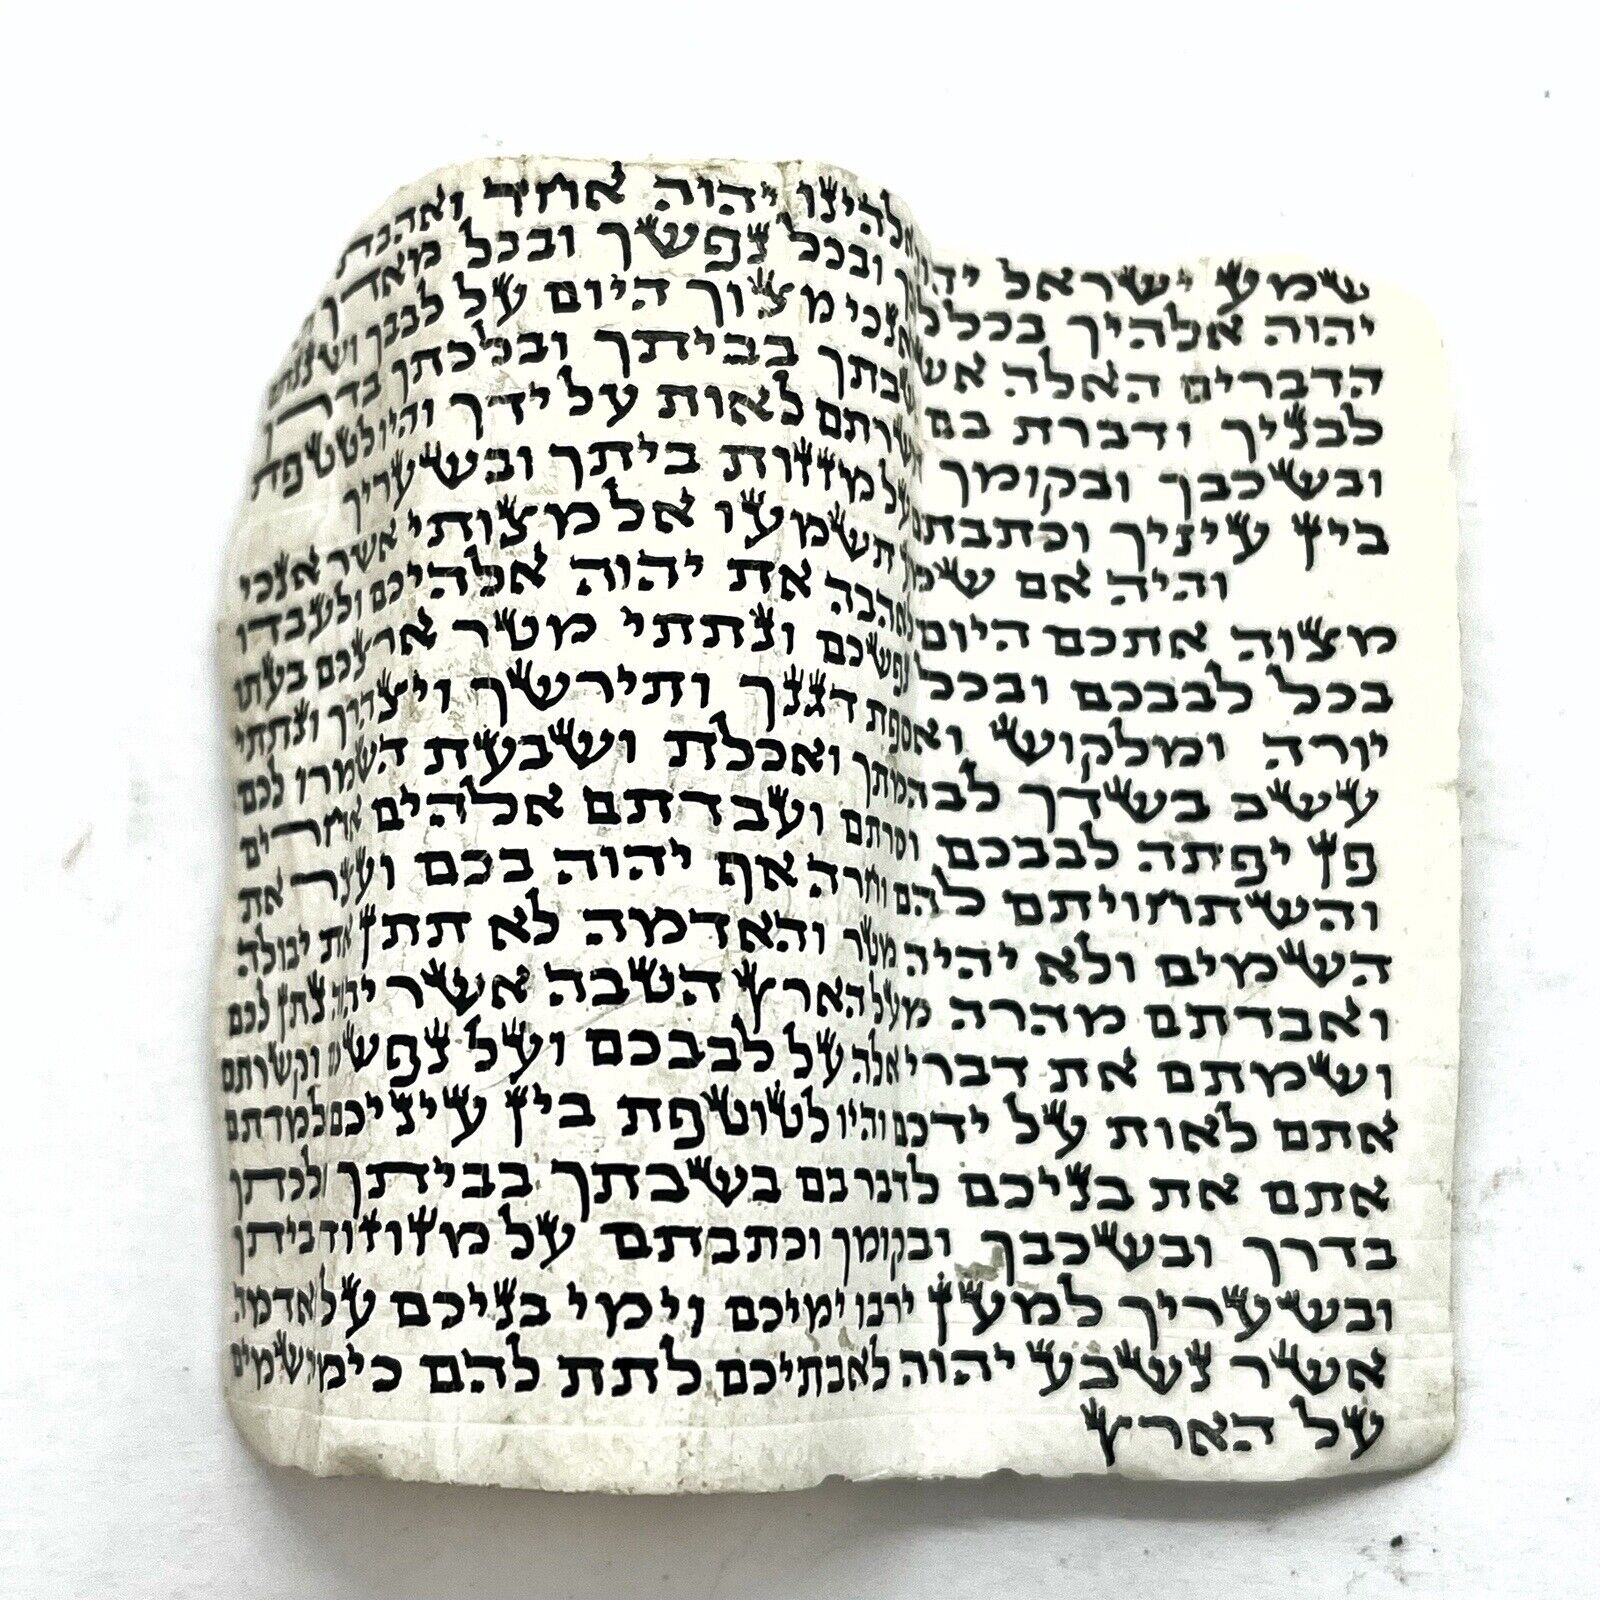 שמע ישראל יהוה אלהינו יהוה אחד ואהבת
יהוה אלהיך בכל לבבך ובכל נפשך ובכל מאדך
הדברים האלה אשר אנכי מצוך היום על לבבך ושננתם
לבניך ודברת בם בשבתך בביתך ובלכתך בדרך
ובשכבך ובקומך וקשרתם לאות על ידך והיו לטטפת
בין עיניך וכתבתם על מזזות ביתך ובשעריך
והיה אם שמע תשמעו אל מצותי אשר אנכי
מצוה אתכם היום לאהבה את יהוה אלהיכם ולעבדו
בכל לבבכם ובכל נפשכם ונתתי מטר ארצכם בעתו
יורה ומלקוש ואספת דגנך ותירשך ויצהרך ונתתי
עשב בשדך לבהמתך ואכלת ושבעת השמרו לכם
פן יפתה לבבכם וסרתם ועבדתם אלהים אחרים
והשתחויתם להם וחרה אף יהוה בכם ועצר את
השמים ולא יהיה מטר והאדמה לא תתן את יבולה
ואבדתם מהרה מעל הארץ הטבה אשר יהוה נתן לכם
ושמתם את דברי אלה על לבבכם ועל נפשם וקשרתם
אתם לאות על ידכם והיו לטוטפת בין עיניכם למדתם
אתם את בניכם לדבר בם בשבתך בביתך ולכתך
בדרך ובשכבך ובקומך וכתבתם על מזוזות ביתך
ובשעריך למען ירבו ימיכם וימי בניכם על אדמה
אשר נשבע יהוה לאבתיכם לתת להם כימי השמים
על הארץ